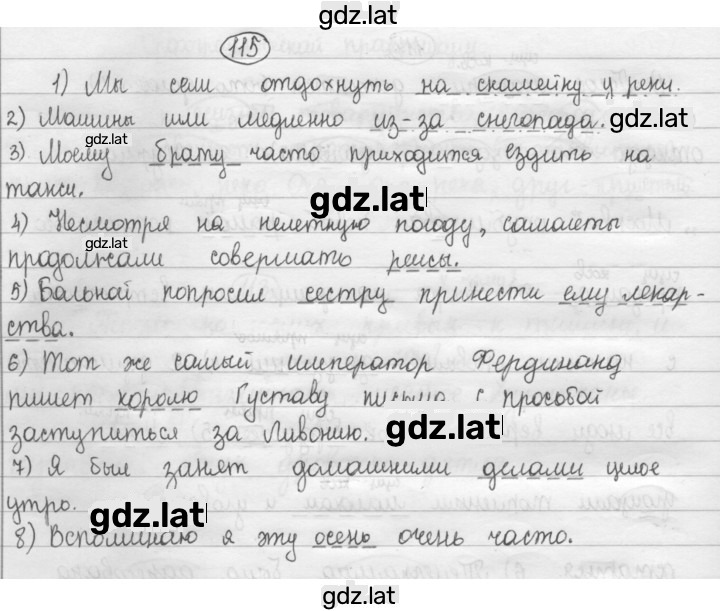 gdz.lat
115
1) Мы сели отдохнуть на скамейку у реки.
2) Машины шли медленно из-за снегопада.
gdz.lat
gdz.lat
3) Моему брату часто приходится ездить на
такси.
gdz.lat
4) Несмотря на нелетную погоду, самолеты
gdz.lat
продолжали совершать рейсы.
5) Больной попросил сестру принести ему лекар-
ства.
6) Тот же самый император Фердинанд
пишет королю Густаву с просьбой
заступиться за Ливонию.
gdz.lat
7) Я был занят домашними делами целое
утро.
gdz.lat
8) Вспоминаю я эту осень очень часто.
gdz.lat